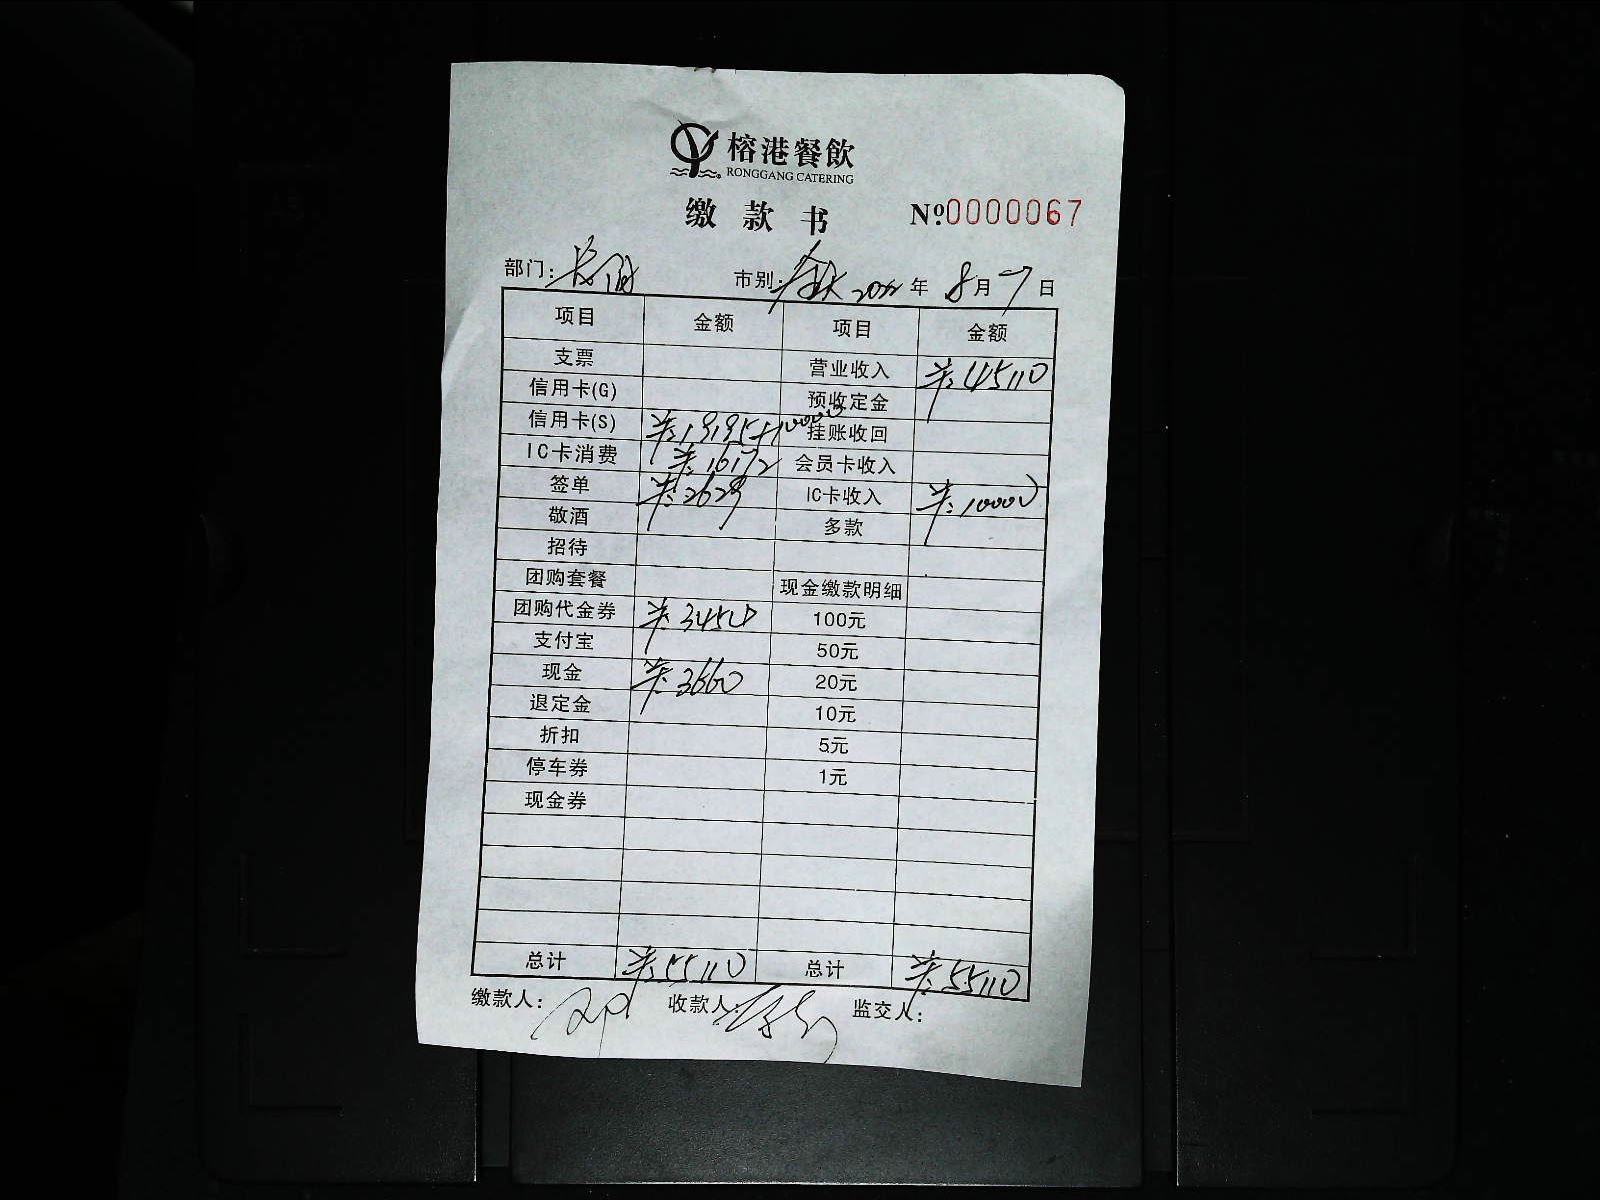 榕港餐飲
RONGGANG CATERING
缴款书 №0000067
部门: 市别: 全天 2022年8月7日
项目 金额 项目 金额
支票 营业收入 ¥:45110
信用卡(G) 预收定金
信用卡(S) ¥:19195+10000 挂账收回
IC卡消费 ¥:16172 会员卡收入
签单 ¥:2629 IC卡收入 ¥:10000
敬酒 多款
招待
团购套餐 现金缴款明细
团购代金券 ¥:3454 100元
支付宝 50元
现金 ¥:3660 20元
退定金 10元
折扣 5元
停车券 1元
现金券
总计 ¥:55110 总计 ¥:55110
缴款人: 收款人: 监交人: